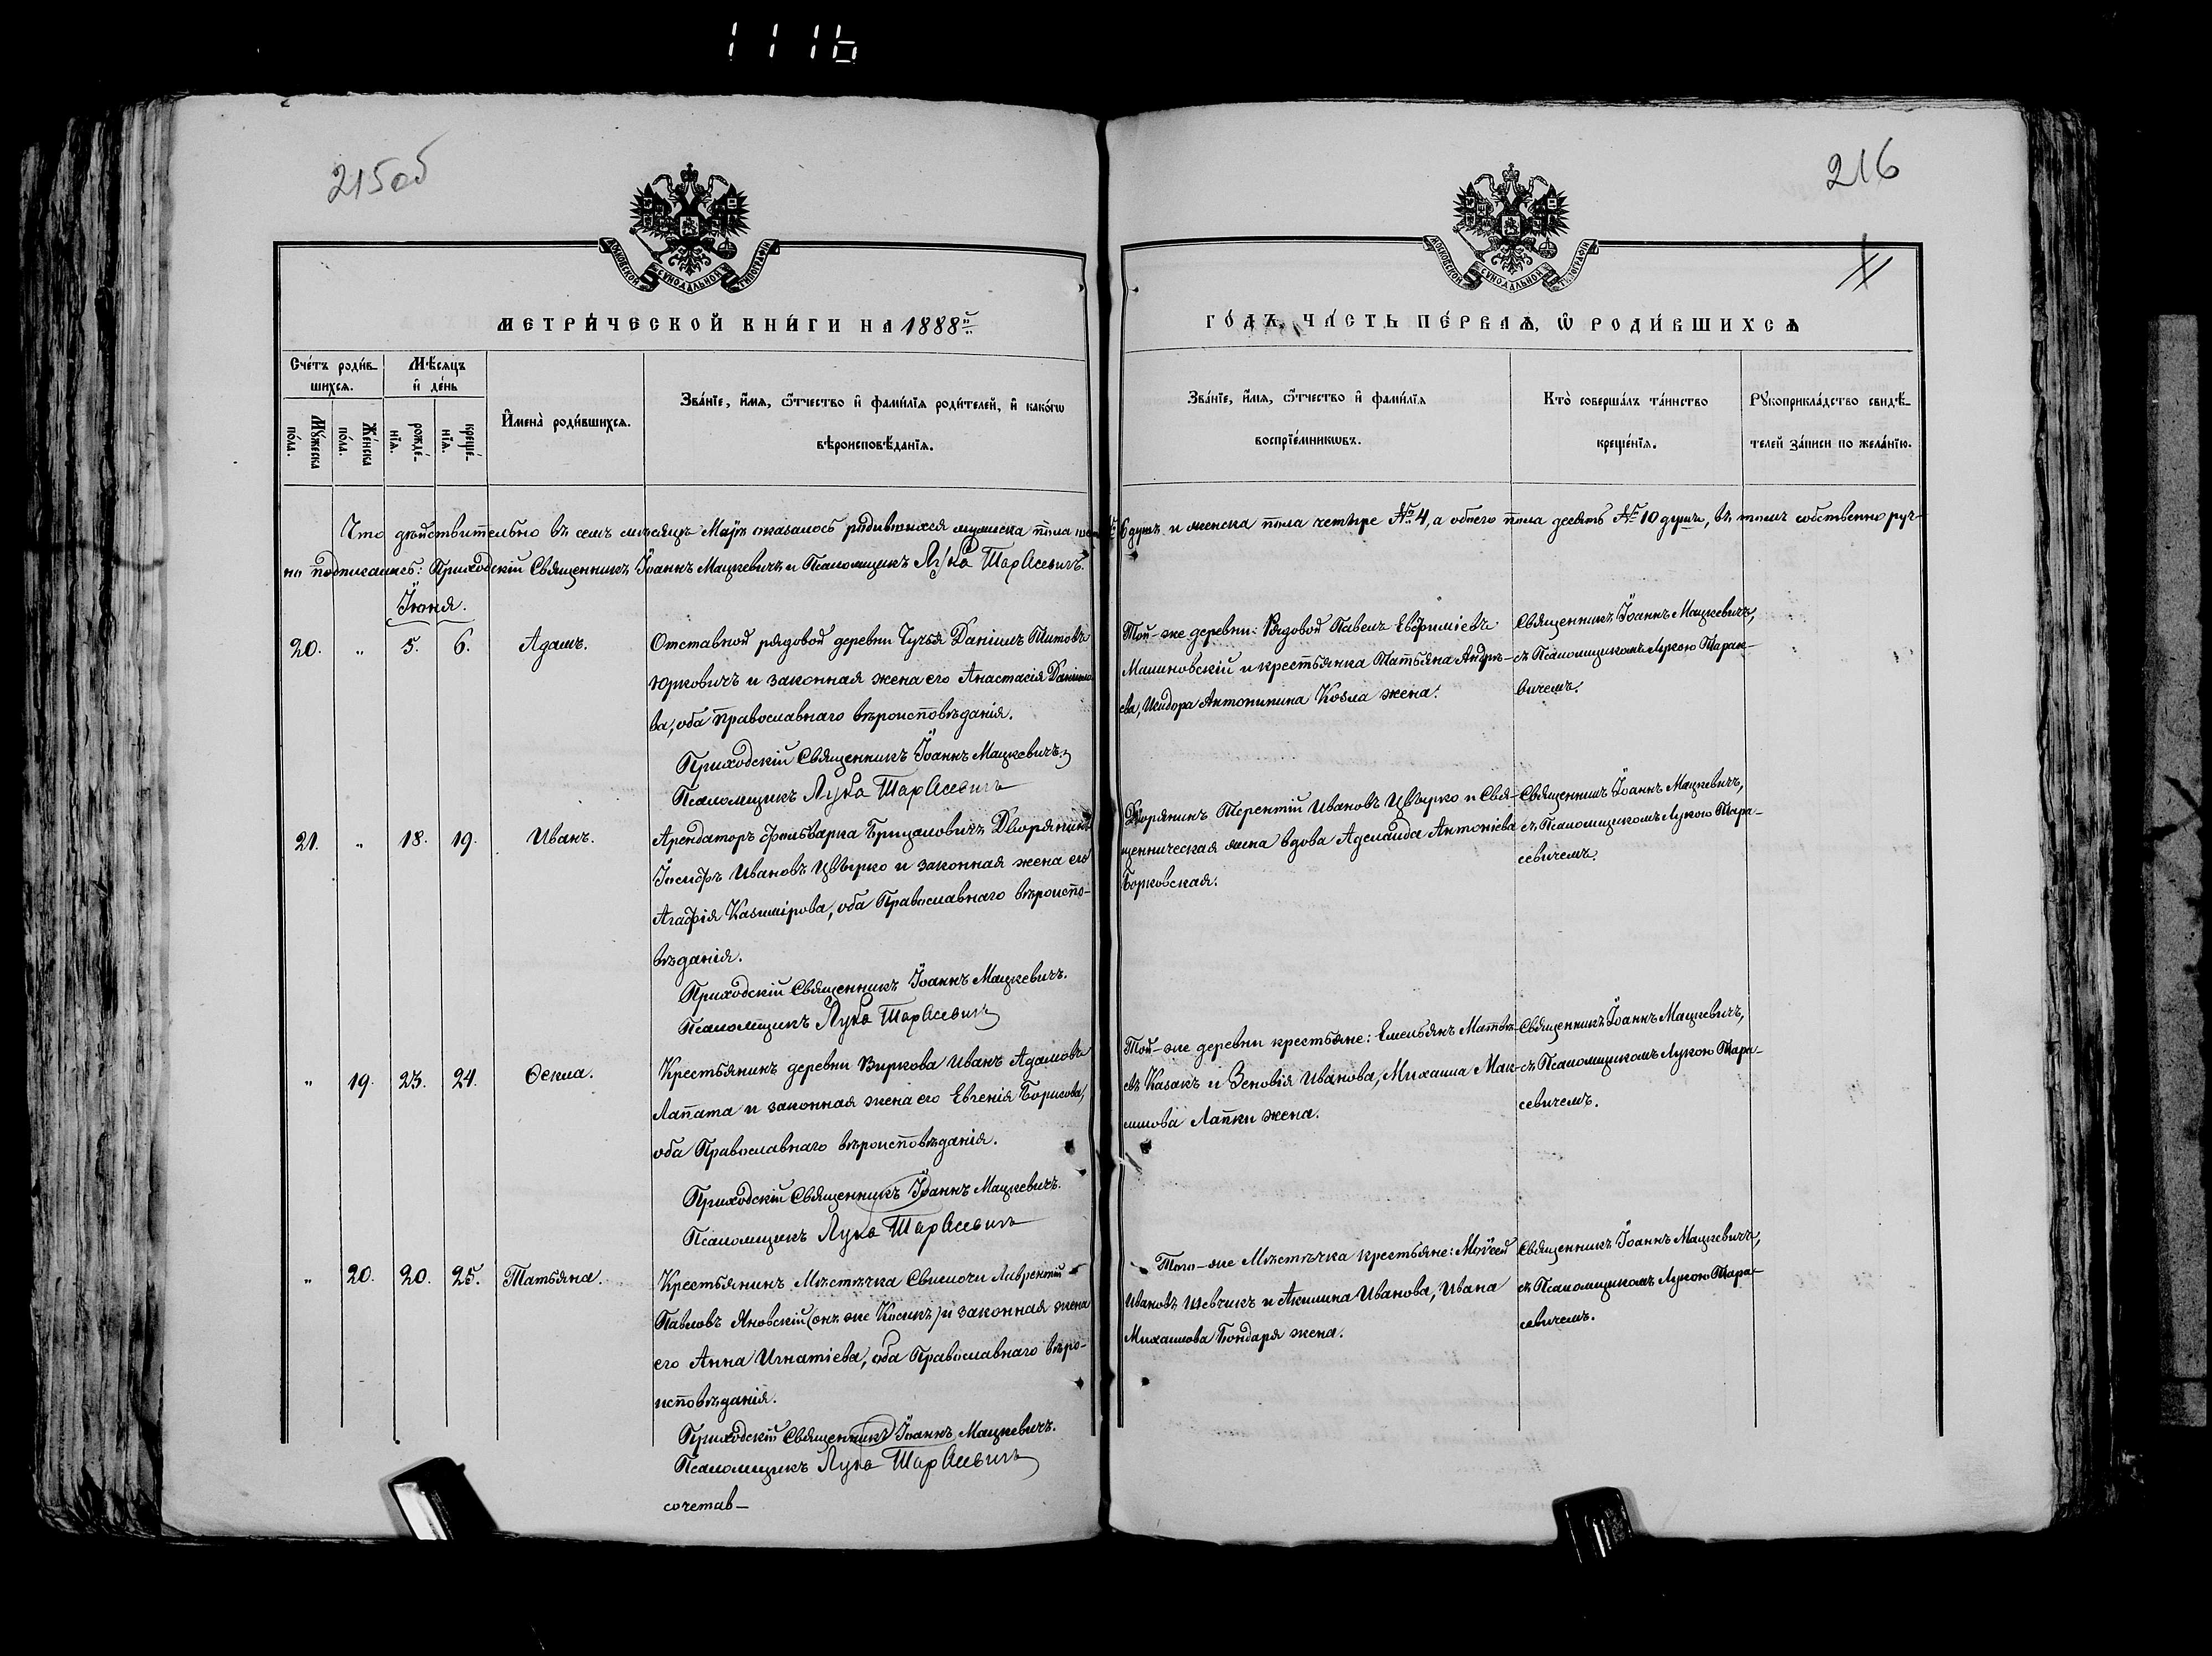 1116
215 об
216
МОСКОВСКОЙ СѴНОДАЛЬНОЙ ТИПОГРАФІИ
МОСКОВСКОЙ СѴНОДАЛЬНОЙ ТИПОГРАФІИ
МЕТРИ́ЧЕСКОЙ КНИ́ГИ НА 1888й
ГО́ДЪ, ЧА́СТЬ ПЕ́РВАѦ, Ѡ РОДИ́ВШИХСѦ
Сче́тъ роди́в-
шихсѧ.
Мꙋ́жеска
по́ла.
Же́нска
по́ла.
Мѣ́сѧцъ
и҆ де́нь
рожде́-
нїѧ.
креще́-
нїѧ.
И҆мена̀ роди́вшихсѧ.
Зва́нїе, и҆́мѧ, ѻ҆́тчество и҆ фами́лїѧ роди́телей, и҆ како́гѡ
вѣроисповѣ́данїѧ.
Зва́нїе, и҆́мѧ, ѻ҆́тчество и҆ фами́лїѧ
воспрїе́мникѡвъ.
Кто̀ соверша́лъ та́инство
креще́нїѧ.
Рꙋкоприкла́дство свидѣ́-
телей за́писи по жела́нїю.
Что дѣйствительно въ семъ мѣсяцѣ Маѣ оказалось родившихся мужеска пола 6 душъ и женска пола четыре № 4, а обоего пола десять № 10 душъ, въ томъ собственноруч-
но подписались: Приходскій Священникъ Іоаннъ Мацкевичъ и Псаломщикъ Лука Тарасевичъ.
Іюня.
20. " 5. 6. Адамъ.
Отставной рядовой деревни Чучья Даніилъ Титовъ
Юрковичъ и законная жена его Анастасія Данiило-
ва, оба православнаго вѣроисповѣданія.
Приходскій Священникъ Іоаннъ Мацкевичъ.
Псаломщикъ Лука Тарасевичъ
Той-же деревни: Рядовой Павелъ Евфиміевъ
Малиновскій и крестьянка Татьяна Андре-
ева, Исидора Антонинина Козла жена.
Священникъ Іоаннъ Мацкевичъ,
съ Псаломщикомъ Лукою Тарасе-
вичемъ.
21. " 18. 19. Иванъ.
Арендаторъ фольварка Брицаловичъ Дворянинъ
Іосифъ Ивановъ Цвѣрко и законная жена его
Агафія Казимірова, оба Православнаго вѣроиспо-
вѣданія.
Приходскій Священникъ Іоаннъ Мацкевичъ.
Псаломщикъ Лука Тарасевичъ
Дворянинъ Терентій Ивановъ Цвѣрко и Свя-
щенническая жена вдова Аделаида Антоніева
Борковская.
Священникъ Іоаннъ Мацкевичъ,
съ Псаломщикомъ Лукою Тара-
севичемъ.
" 19. 23. 24. Ѳекла.
Крестьянинъ деревни Виркова Иванъ Адамовъ
Лапата и законная жена его Евгенія Борисова,
оба Православнаго вѣроисповѣданія.
Приходскій Священникъ Іоаннъ Мацкевичъ.
Псаломщикъ Лука Тарасевичъ
Той-же деревни крестьяне: Емельянъ Матвѣ-
евъ Казакъ и Зеновія Иванова, Михаила Мак-
симова Лапки жена.
Священникъ Іоаннъ Мацкевичъ,
съ Псаломщикомъ Лукою Тара-
севичемъ.
" 20. 20. 25. Татьяна.
Крестьянинъ Мѣстечка Свислочи Лаврентій
Павловъ Яновскій (онъ же Косикъ) и законная жена
его Анна Игнатіева, оба Православнаго вѣро-
исповѣданія.
Приходскій Священникъ Іоаннъ Мацкевичъ.
Псаломщикъ Лука Тарасевичъ
сочетав-
Того-же Мѣстечка крестьяне: Моѵсей
Ивановъ Шевчикъ и Акилина Иванова, Ивана
Михаилова Бондаря жена.
Священникъ Іоаннъ Мацкевичъ,
съ Псаломщикомъ Лукою Тара-
севичемъ.